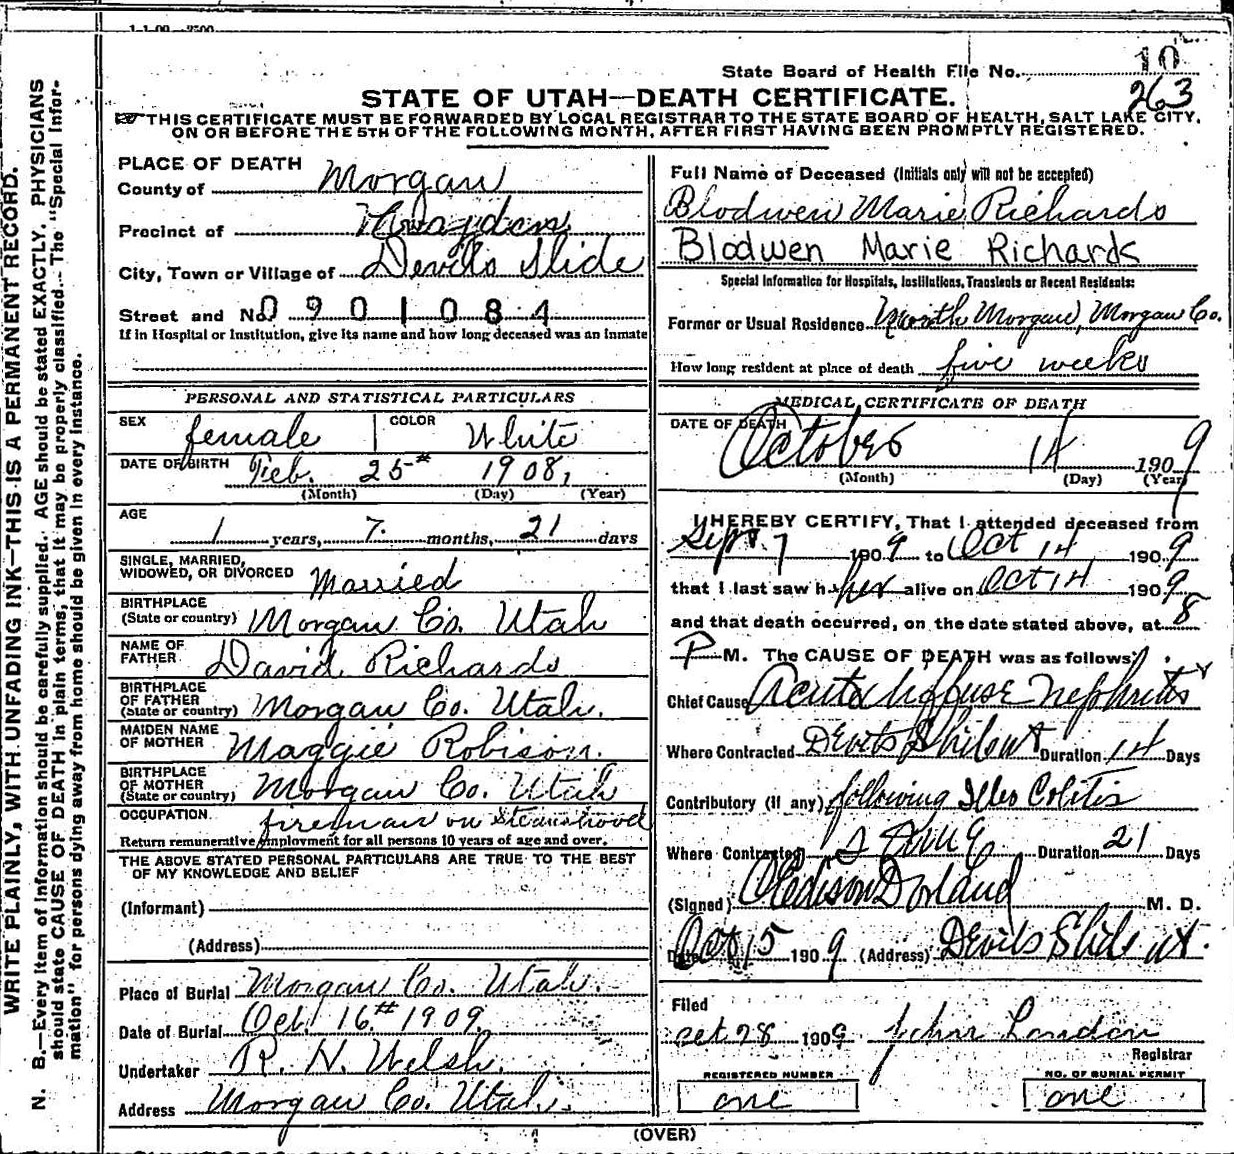 1-1-09—2500
State Board of Health File No. 10
263
STATE OF UTAH—DEATH CERTIFICATE.
THIS CERTIFICATE MUST BE FORWARDED BY LOCAL REGISTRAR TO THE STATE BOARD OF HEALTH, SALT LAKE CITY,
ON OR BEFORE THE 5TH OF THE FOLLOWING MONTH, AFTER FIRST HAVING BEEN PROMPTLY REGISTERED.
WRITE PLAINLY, WITH UNFADING INK—THIS IS A PERMANENT RECORD.
N. B.—Every item of information should be carefully supplied. AGE should be stated EXACTLY. PHYSICIANS
should state CAUSE OF DEATH in plain terms, that it may be properly classified. The "Special Infor-
mation" for persons dying away from home should be given in every instance.
PLACE OF DEATH
County of Morgan
Precinct of
City, Town or Village of Devils Slide
Street and No. 0901084
If in Hospital or Institution, give its name and how long deceased was an inmate
PERSONAL AND STATISTICAL PARTICULARS
SEX female COLOR White
DATE OF BIRTH Feb. 25th 1908,
(Month) (Day) (Year)
AGE
1 years, 7 months, 21 days
SINGLE, MARRIED,
WIDOWED, OR DIVORCED Married
BIRTHPLACE
(State or country) Morgan Co. Utah
NAME OF
FATHER David Richards
BIRTHPLACE
OF FATHER
(State or country) Morgan Co. Utah.
MAIDEN NAME
OF MOTHER Maggie Robison.
BIRTHPLACE
OF MOTHER
(State or country) Morgan Co. Utah
OCCUPATION fireman on steamshovel
Return remunerative employment for all persons 10 years of age and over.
THE ABOVE STATED PERSONAL PARTICULARS ARE TRUE TO THE BEST
OF MY KNOWLEDGE AND BELIEF
(Informant)
(Address)
Place of Burial Morgan Co. Utah.
Date of Burial Oct. 16th 1909.
Undertaker R. H. Welsh.
Address Morgan Co. Utah.
Full Name of Deceased (Initials only will not be accepted)
Blodwen Marie Richards
Blodwen Marie Richards
Special Information for Hospitals, Institutions, Transients or Recent Residents:
Former or Usual Residence North Morgan, Morgan Co.
How long resident at place of death five weeks
MEDICAL CERTIFICATE OF DEATH
DATE OF DEATH October 14 1909
(Month) (Day) (Year)
I HEREBY CERTIFY, That I attended deceased from
Sept. 7 1909 to Oct 14 1909
that I last saw h her alive on Oct 14 1909
and that death occurred, on the date stated above, at 8
P M. The CAUSE OF DEATH was as follows:
Chief Cause Acute diffuse Nephritis
Where Contracted Devils Slide ut Duration 14 Days
Contributory (if any) following Ileo Colitis
Where Contracted Same Duration 21 Days
(Signed) Dorland M. D.
Date Oct 15 1909 (Address) Devils Slide ut.
Filed
Oct 28 1909 John London
Registrar
REGISTERED NUMBER NO. OF BURIAL PERMIT
one one
(OVER)